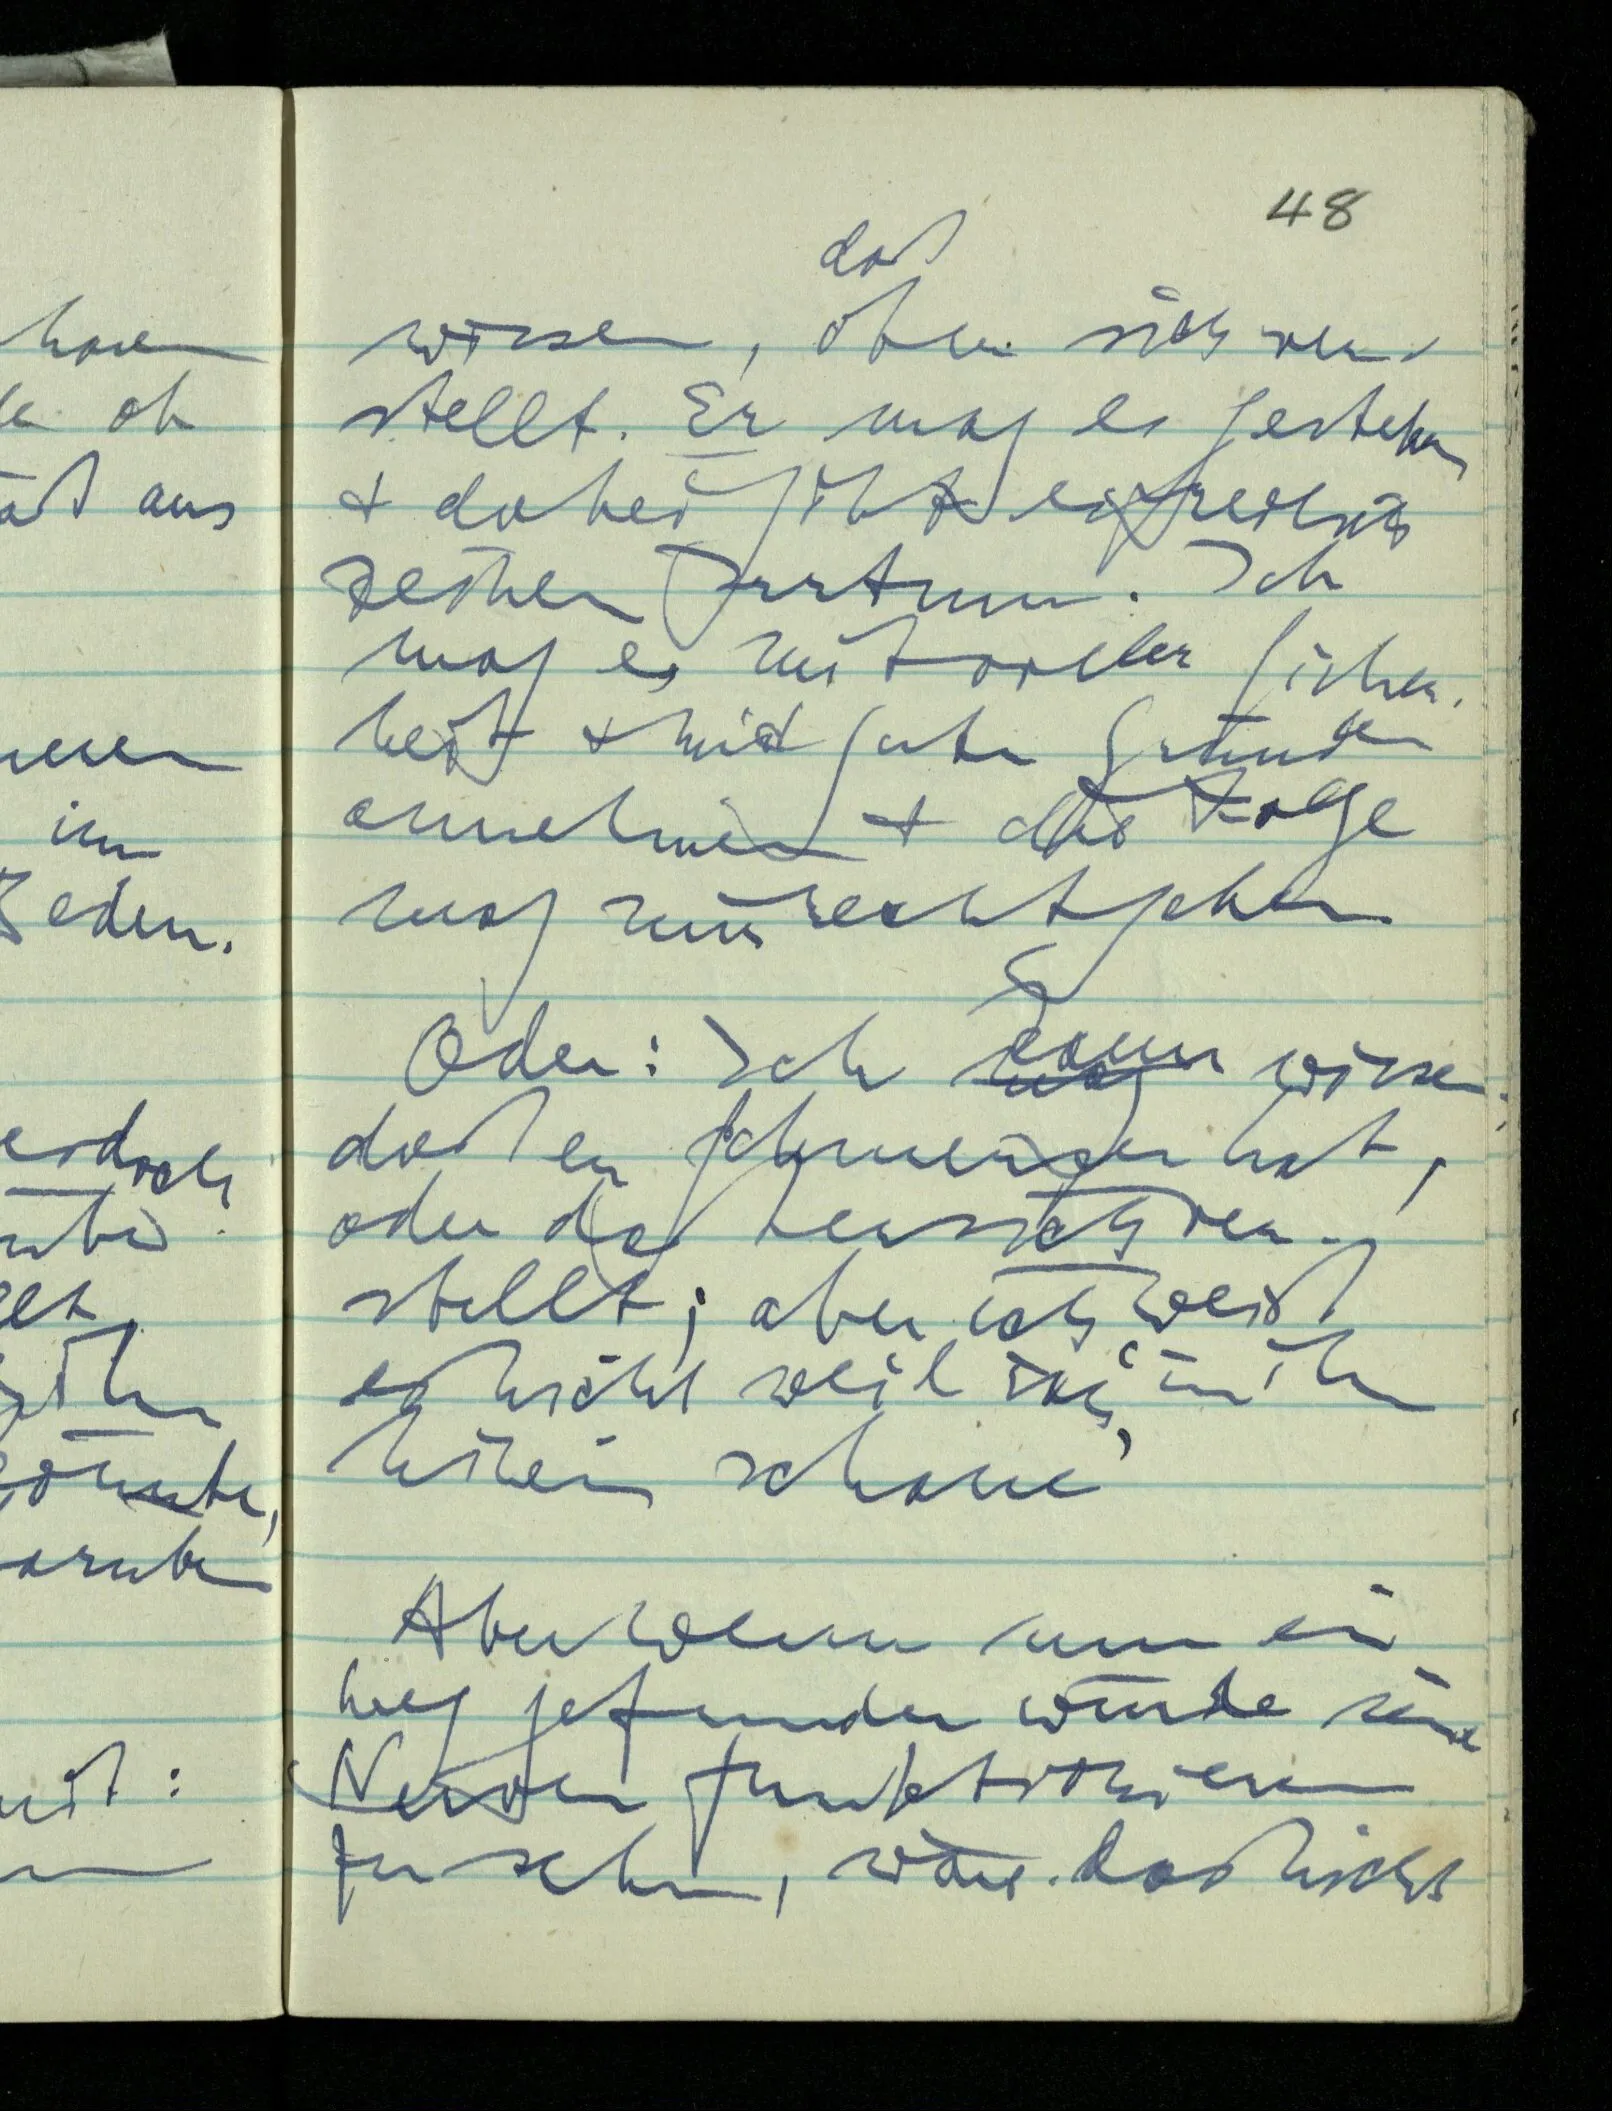 48
daß
wissen, ob er sich ver-
stellt. Er mag es gestehen
& dabei gibt es freilich
keinen Irrtum. Ich
mag es mit voller Sicher-
heit & mit guten Gründen
annehmen & die Folge
mag mir recht geben.
Oder: Ich kann wissen
daß er Schmerzen hat,
oder daß er sich ver-
stellt; aber ich weiß
es nicht weil ich ‘in ihn
hinein schaue’
Aber wenn nun ein
Weg gefunden würde seine
Nerven funktionieren
zu sehen, wäre das nicht
ob
aus
im
Reden.